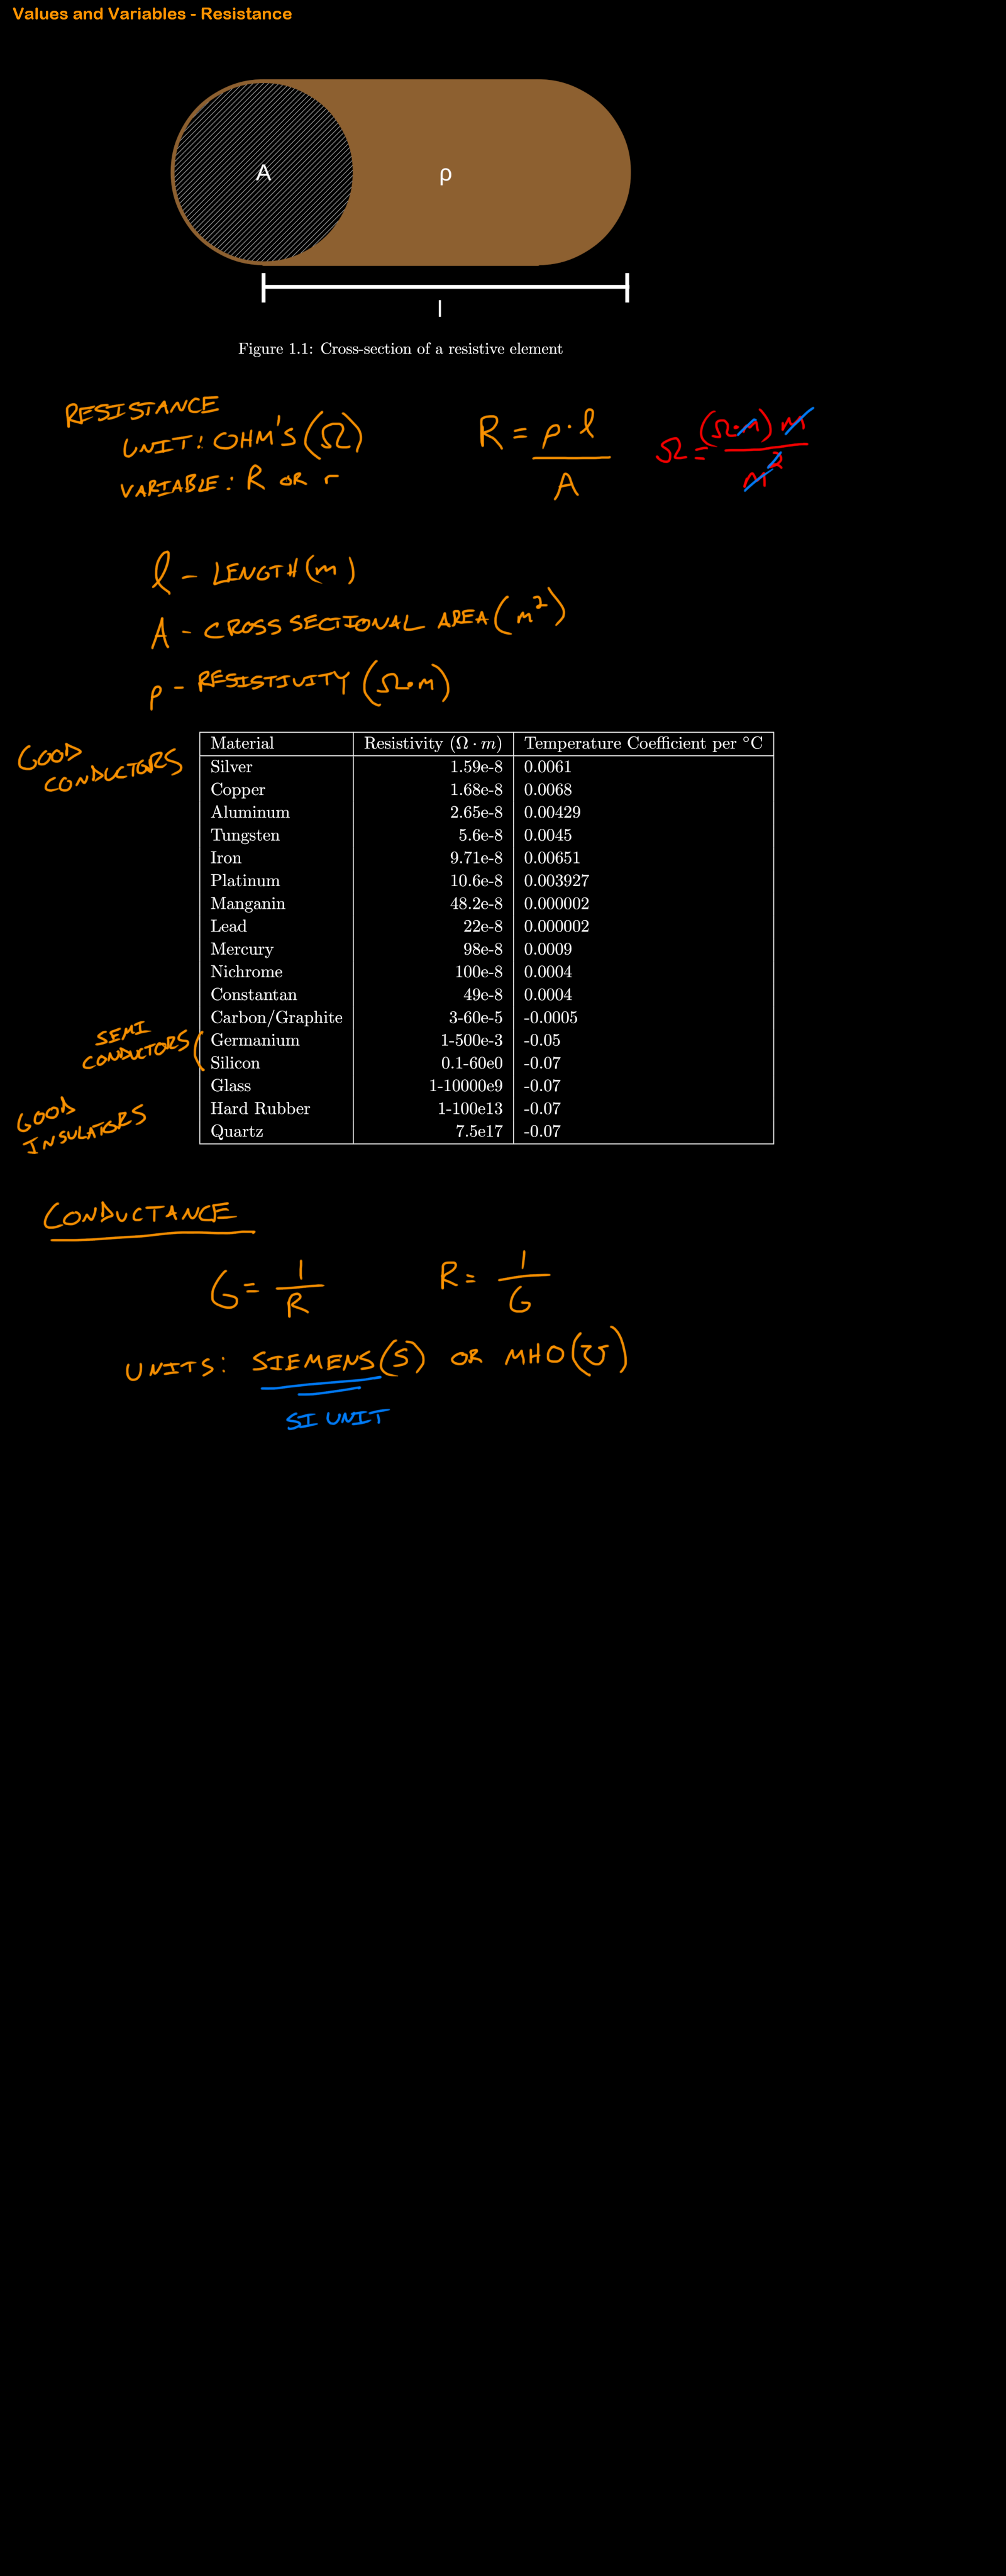 Values and Variables - Resistance
A
ρ
l
Figure 1.1: Cross-section of a resistive element
RESISTANCE
UNIT: OHM'S (Ω)
VARIABLE: R OR r
R = ρ·l / A
Ω = (Ω·m) m / m²
l - LENGTH (m)
A - CROSS SECTIONAL AREA (m²)
ρ - RESISTIVITY (Ω·m)
GOOD
CONDUCTORS
Material Resistivity (Ω · m) Temperature Coefficient per °C
Silver 1.59e-8 0.0061
Copper 1.68e-8 0.0068
Aluminum 2.65e-8 0.00429
Tungsten 5.6e-8 0.0045
Iron 9.71e-8 0.00651
Platinum 10.6e-8 0.003927
Manganin 48.2e-8 0.000002
Lead 22e-8 0.000002
Mercury 98e-8 0.0009
Nichrome 100e-8 0.0004
Constantan 49e-8 0.0004
Carbon/Graphite 3-60e-5 -0.0005
SEMI
CONDUCTORS
Germanium 1-500e-3 -0.05
Silicon 0.1-60e0 -0.07
Glass 1-10000e9 -0.07
GOOD
INSULATORS
Hard Rubber 1-100e13 -0.07
Quartz 7.5e17 -0.07
CONDUCTANCE
G = 1 / R
R = 1 / G
UNITS: SIEMENS (S) OR MHO (℧)
SI UNIT